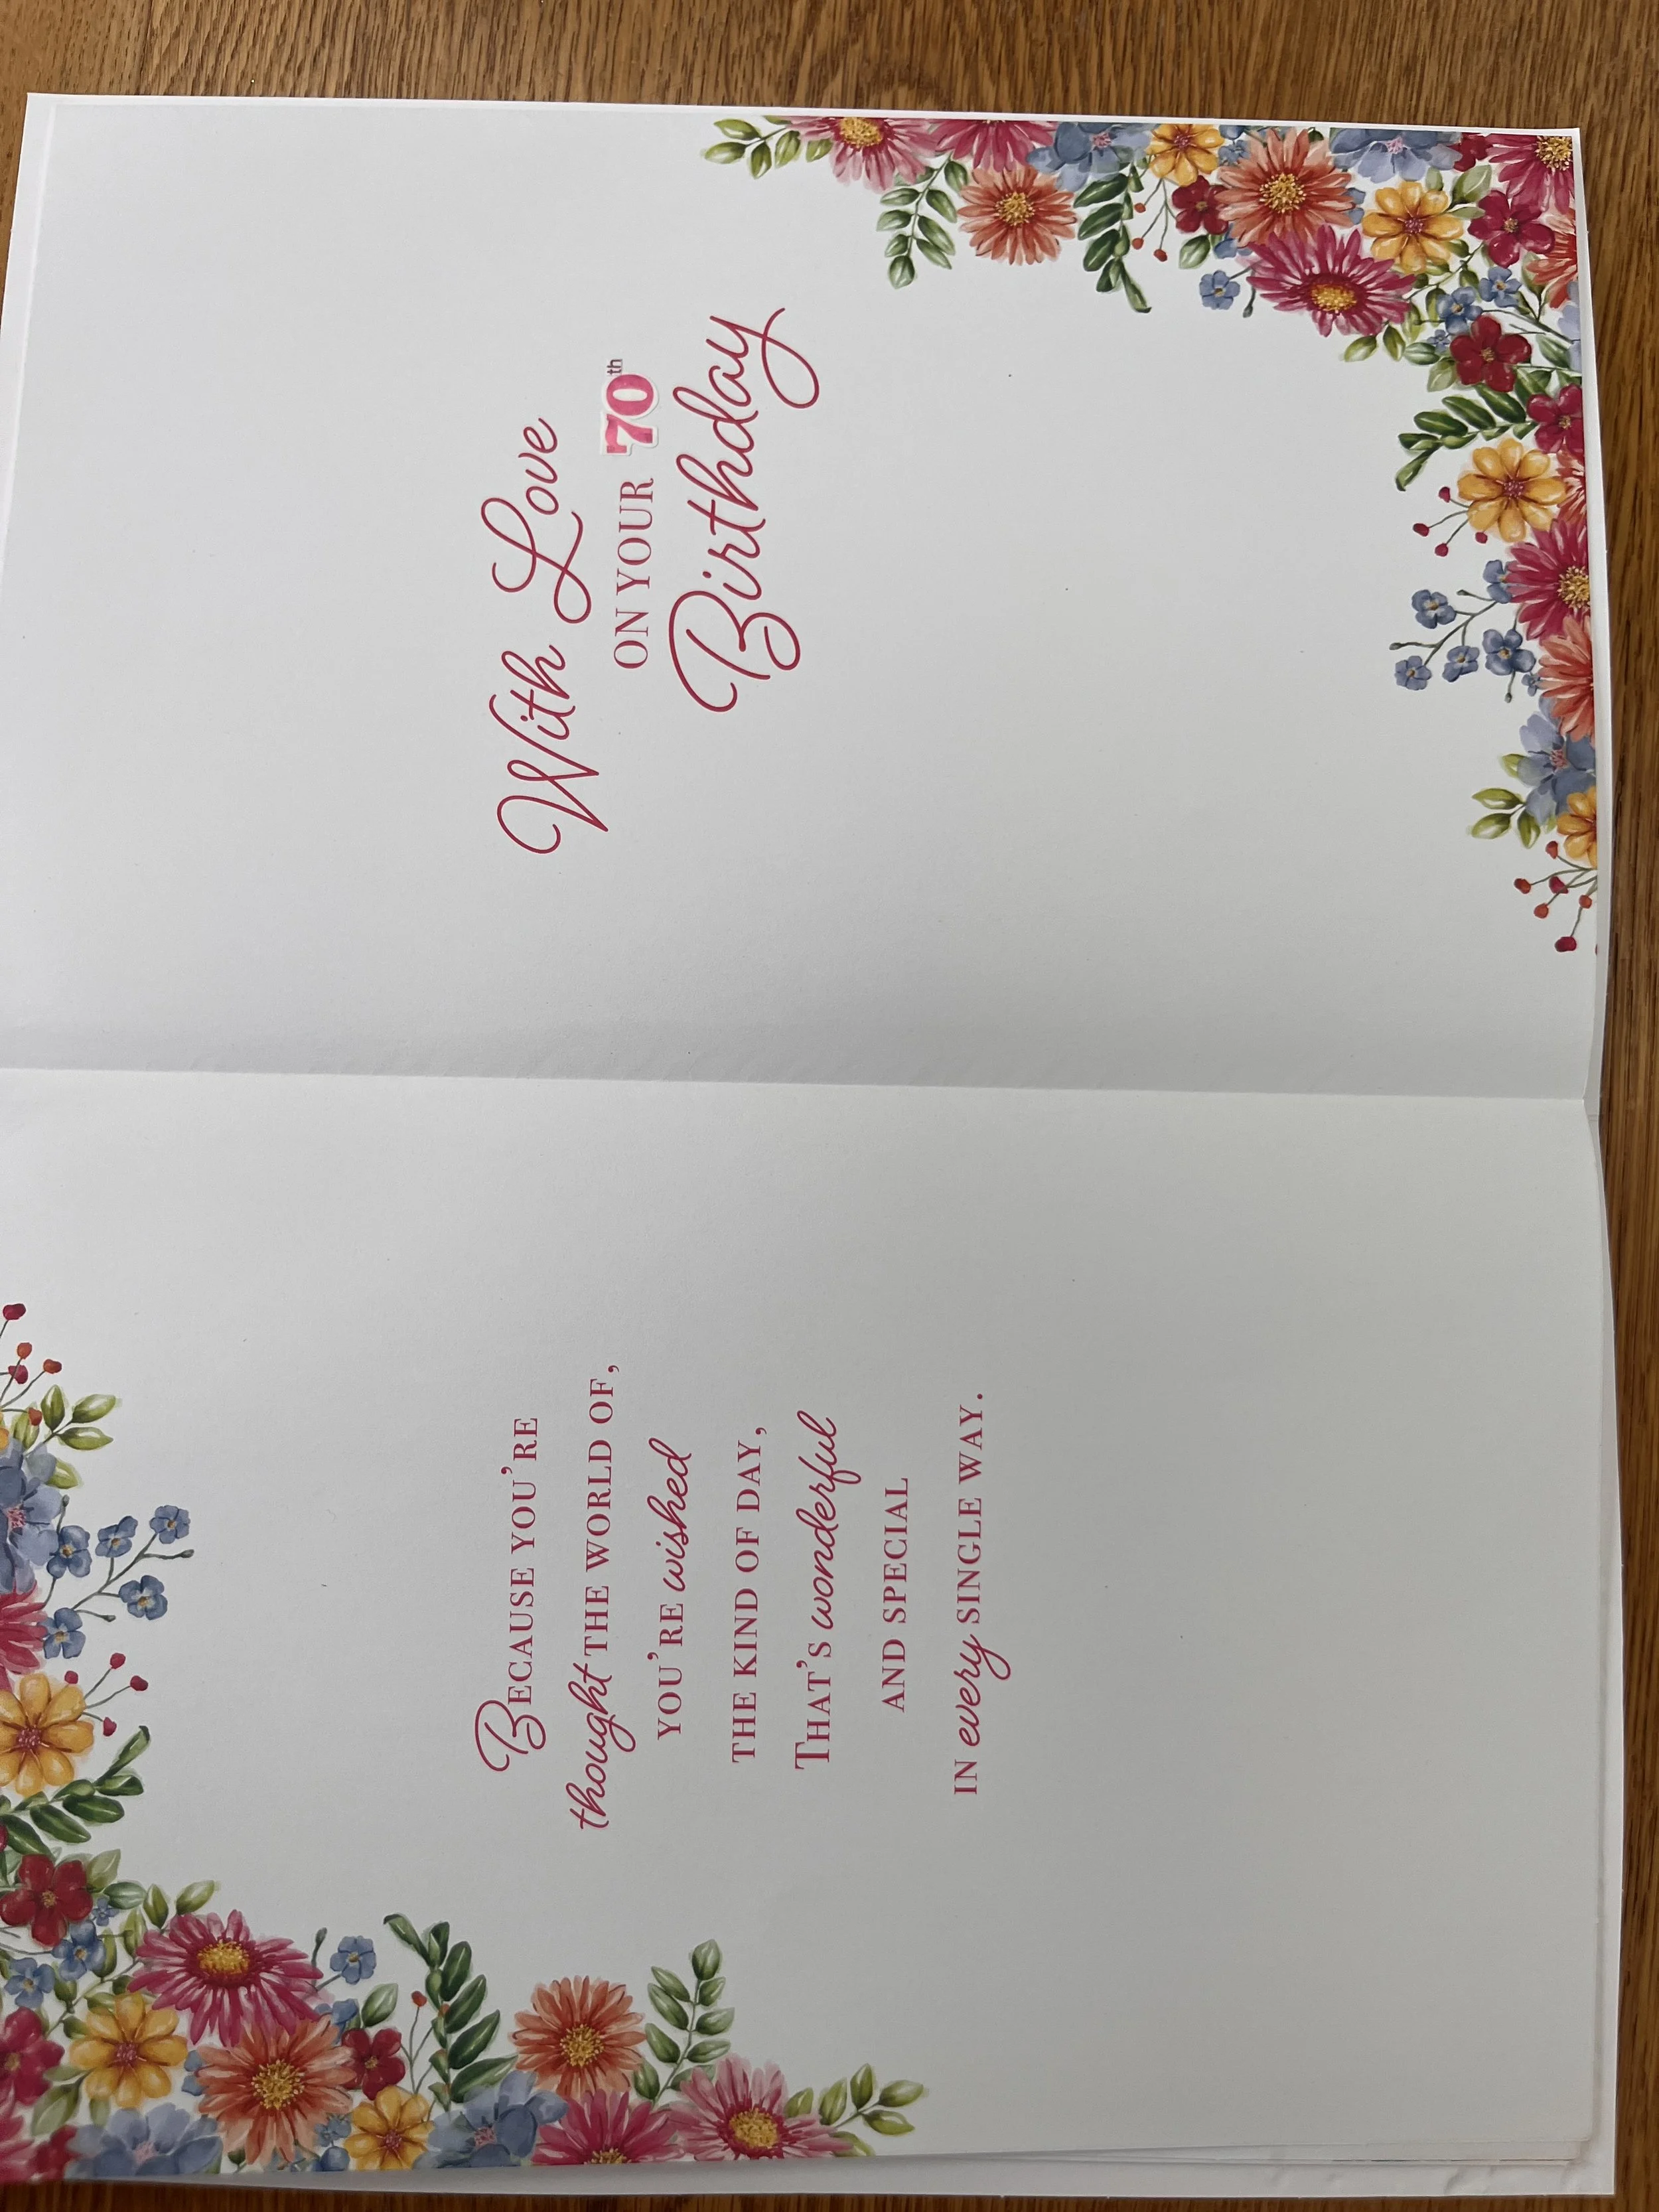 BECAUSE YOU'RE
thought THE WORLD OF,
YOU'RE wished
THE KIND OF DAY,
THAT'S wonderful
AND SPECIAL
IN every SINGLE WAY.
With Love
ON YOUR 70th
Birthday